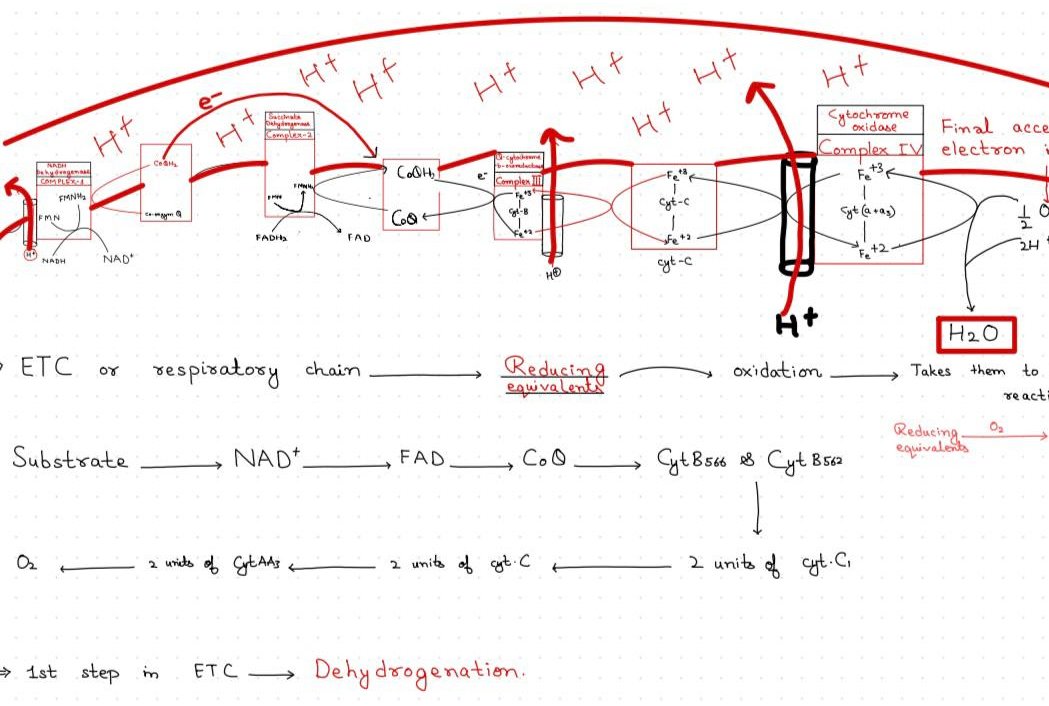 H+ H+
H+ H+ H+ H+
H+ H+
e-
NADH
Dehydrogenase
COMPLEX-1
FMNH2
FMN
H+
NADH
NAD+
CoQH2
Co-enzym Q
Succinate
Dehydrogenase
Complex-2
FMNH2
FMN
FADH2
FAD
CoQH2
CoQ
e-
Q-cytochrome
Complex III
Fe+3
Cyt-B
Fe+2
H+
Fe+3
Cyt-C
Fe+2
cyt-C
H+
Cytochrome
oxidase
Complex IV
Fe+3
Cyt (a+a3)
Fe+2
Final acce
electron i
1/2 O
2H+
H2O
ETC or respiratory chain → Reducing equivalents → oxidation → Takes them to
reacti
Reducing equivalents O2 →
Substrate → NAD+ → FAD → CoQ → Cyt B566 & Cyt B562
O2 ← 2 units of Cyt AA3 ← 2 units of cyt.C ← 2 units of cyt.C1
⇒ 1st step in ETC → Dehydrogenation.